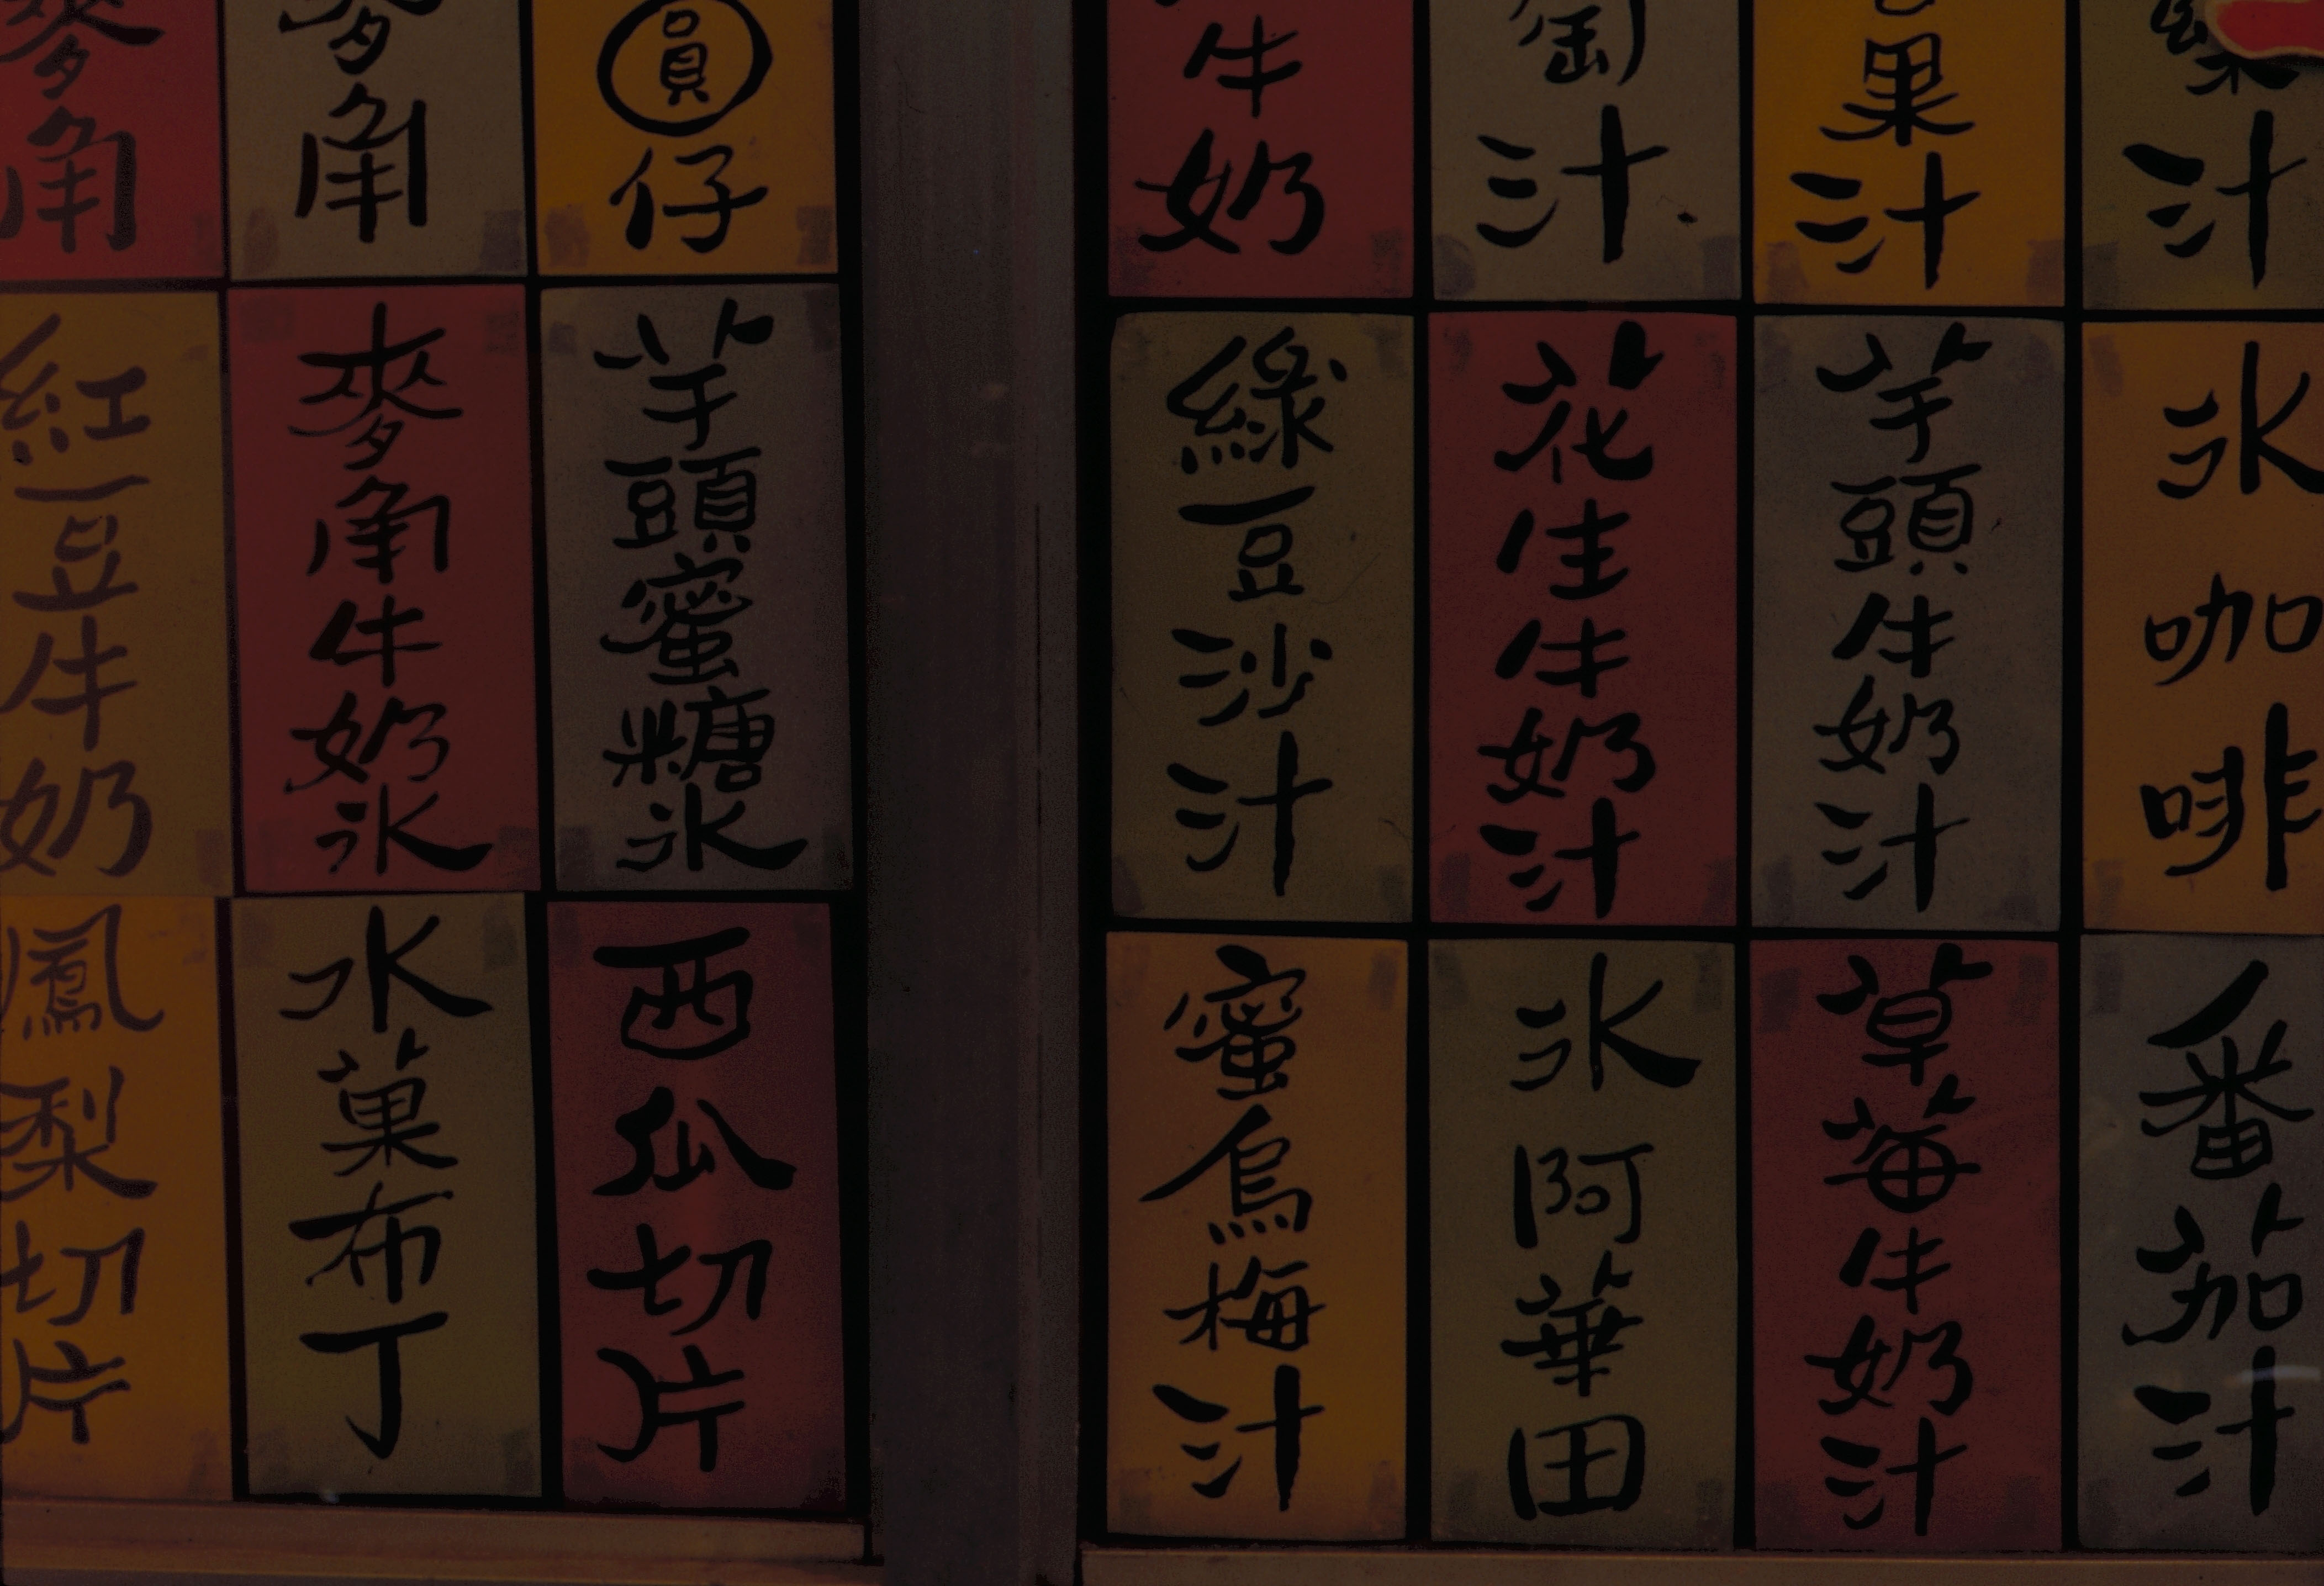 麥角
麥角
圓仔
牛奶
萄汁
果汁
汁
紅豆牛奶
麥角牛奶冰
芋頭蜜糖冰
綠豆沙汁
花生牛奶汁
芋頭牛奶汁
冰咖啡
鳳梨切片
水菓布丁
西瓜切片
蜜烏梅汁
冰阿華田
草莓牛奶汁
番茄汁